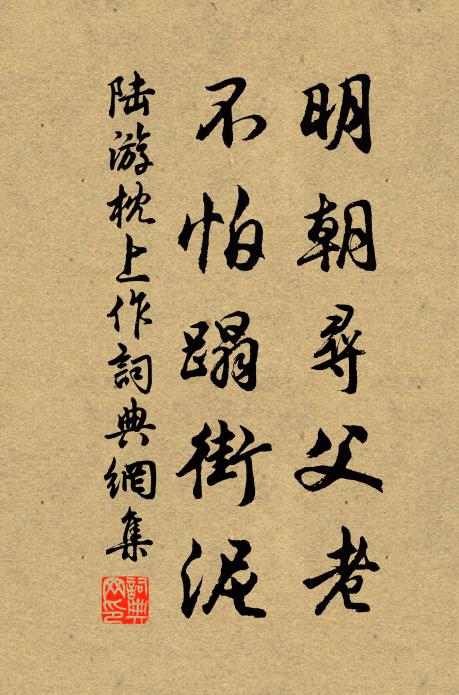 明朝尋父老
不怕蹋街泥
陸游枕上作詞典網集
詞典網印